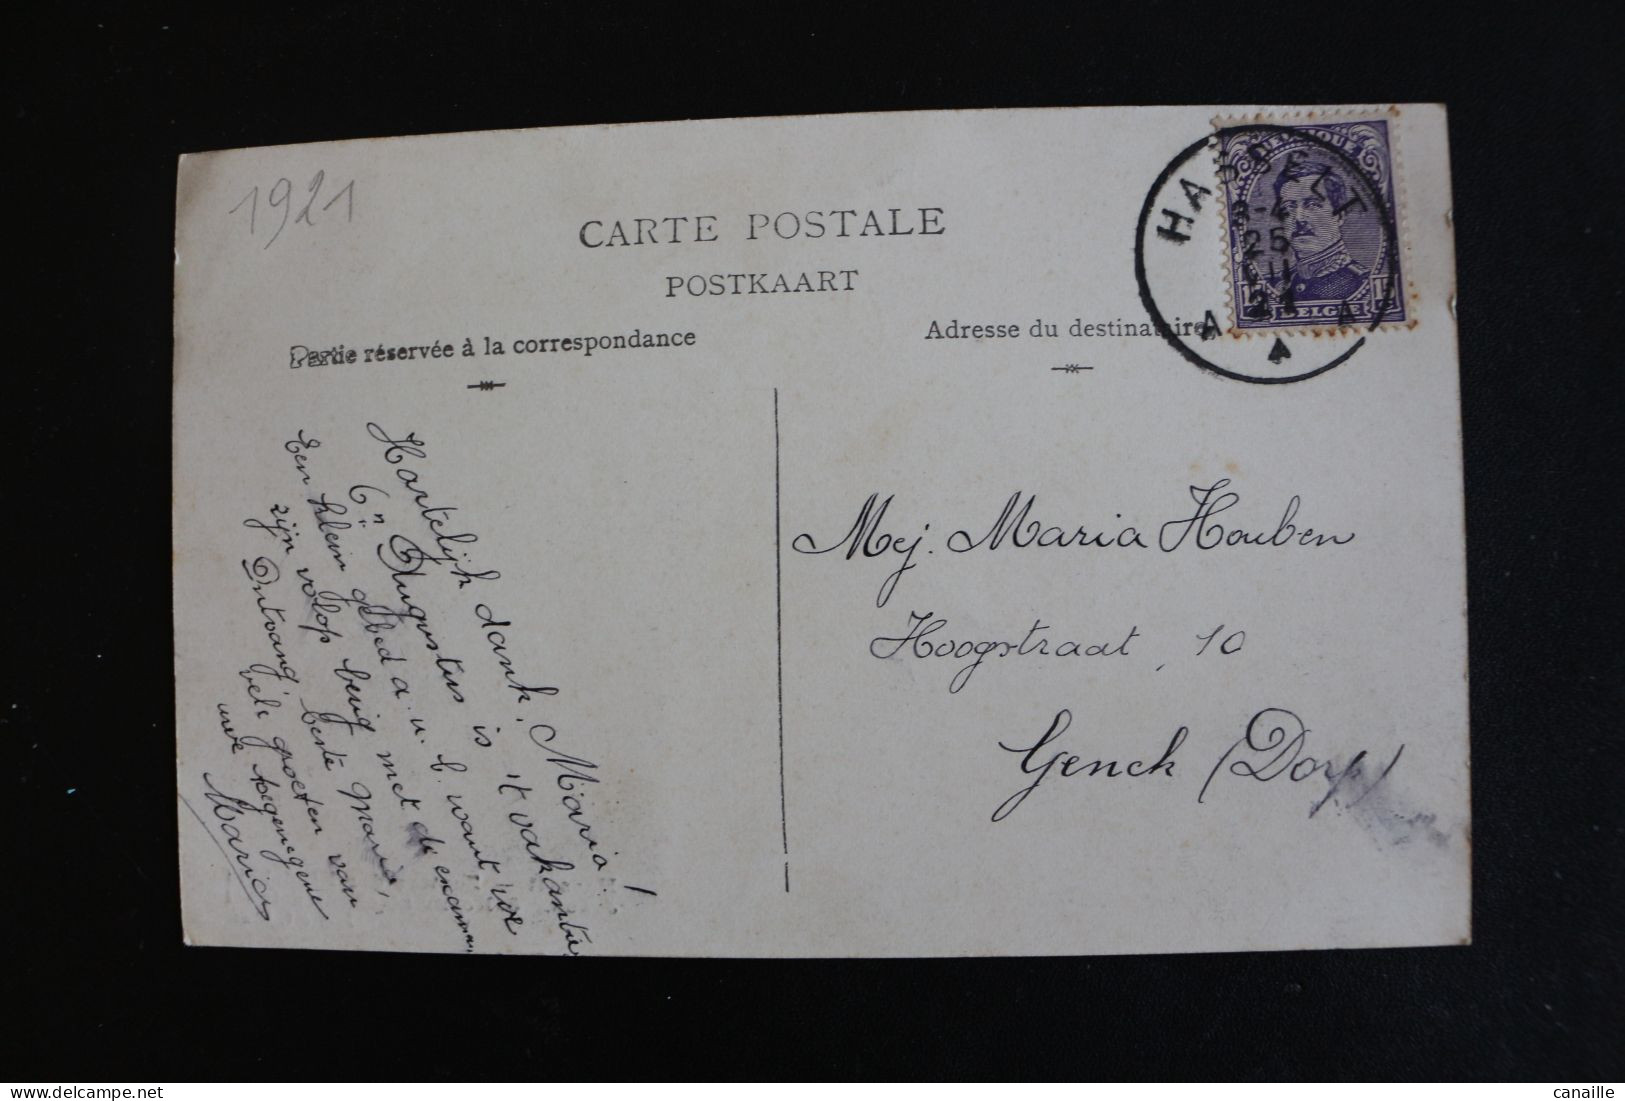 1921
CARTE POSTALE
POSTKAART
Partie réservée à la correspondance
Adresse du destinataire
HASSELT
25
21
A A A
BELGIQUE
15 15
BELGIE
Hartelijk dank, Maria!
6n Augustus is 't vakantie
Een klein gebed a. u. b. want we
zijn volop bezig met de examen,
Ontvang, beste Maria,
vele groeten van
uwe toegenegene
Maria
Mej. Maria Houben
Hoogstraat, 10
Genck (Dorp)
canaille